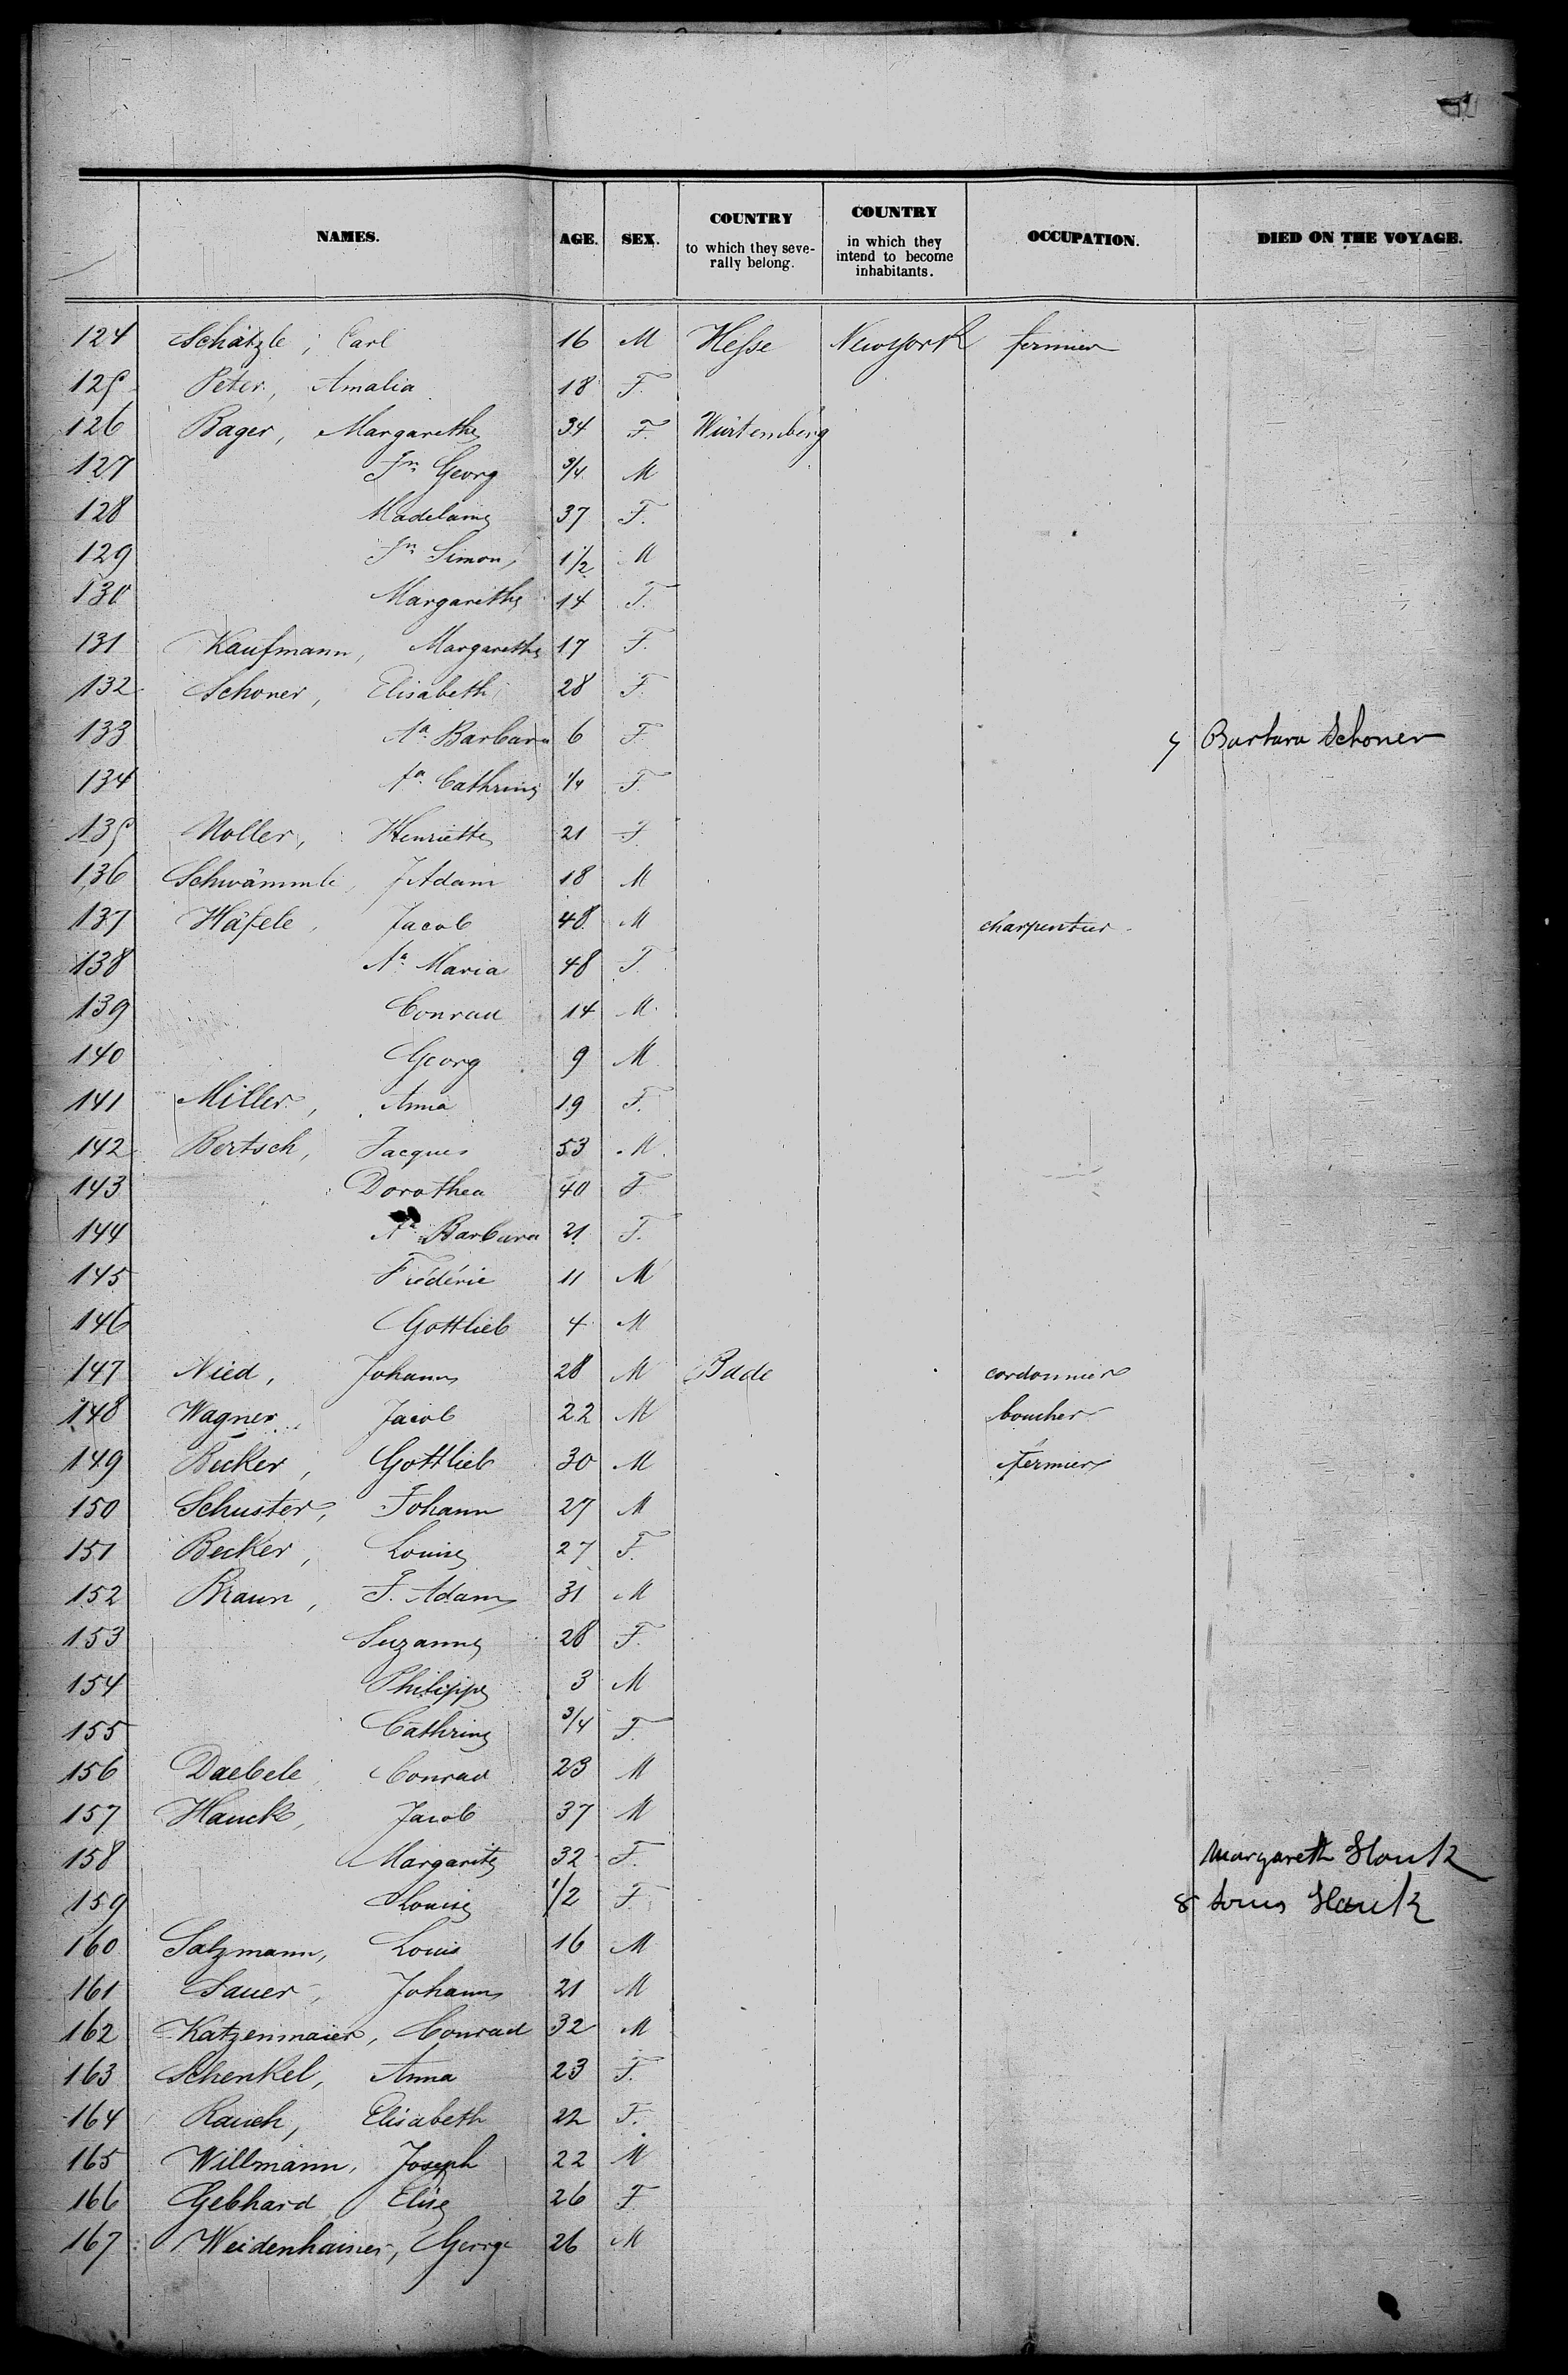 NAMES. AGE. SEX. COUNTRY to which they severally belong. COUNTRY in which they intend to become inhabitants. OCCUPATION. DIED ON THE VOYAGE.
124 Schätzle, Carl 16 M Hesse Newyork fermier
125 Peter, Amalia 18 F.
126 Bager, Margarethe 34 F. Würtemberg
127 Jn. Georg 3/4 M
128 Madelaine 37 F.
129 Jn. Simon 1/2 M
130 Margarethe 14 F.
131 Kaufmann, Margarethe 17 F.
132 Schoner, Elisabeth 28 F.
133 Aa. Barbara 6 F. 7 Barbara Schoner
134 Aa. Cathrine 1/4 F.
135 Noller, Henriette 21 F.
136 Schwämmle, J Adam 18 M
137 Häfele, Jacob 48 M charpentier
138 Aa. Maria 48 F.
139 Conrad 14 M.
140 Georg 9 M
141 Miller, Anna 19 F.
142 Bertsch, Jacques 53 M.
143 Dorothea 40 F
144 Aa. Barbara 21 F.
145 Frédéric 11 M
146 Gottlieb 4 M
147 Nied, Johann 28 M Bade cordonnier
148 Wagner, Jacob 22 M boucher
149 Becker, Gottlieb 30 M fermier
150 Schuster, Johann 27 M
151 Becker, Louise 27 F.
152 Braun, J. Adam 31 M
153 Suzanne 28 F.
154 Philippe 3 M
155 Cathrine 3/4 F.
156 Daebele, Conrad 23 M
157 Hauck, Jacob 37 M
158 Margarite 32 F. Margareth Hauk
159 Louise 1/2 F 8 Hauk
160 Salzmann, Louis 16 M
161 Sauer, Johann 21 M
162 Katzenmaier, Conrad 32 M
163 Schenkel, Anna 23 F.
164 Rauch, Elisabeth 22 F.
165 Willmann, Joseph 22 M
166 Gebhard, Elise 26 F
167 Weidenhaimer, George 26 M